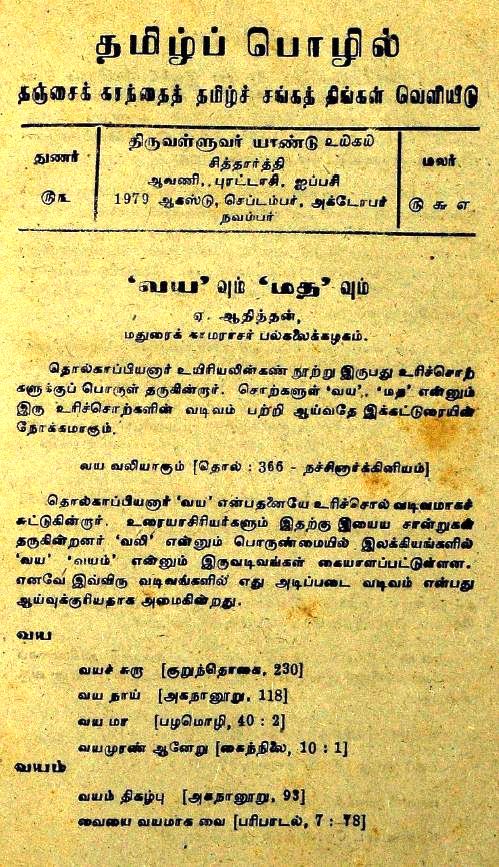 தமிழ்ப் பொழில்
தஞ்சைக் கரந்தைத் தமிழ்ச் சங்கத் திங்கள் வெளியீடு
திருவள்ளுவர் யாண்டு
துணர்
சித்தார்த்தி
மலர்
ஆவணி, புரட்டாசி, ஐப்பசி
1979 ஆகஸ்டு, செப்டம்பர், அக்டோபர்
நவம்பர்
௫ ௬ ௭
‘வய’ வும் ‘மத’ வும்
ஏ. ஆதித்தன்,
மதுரைக் காமராசர் பல்கலைக்கழகம்.
தொல்காப்பியனார் உயிரியலின்கண் நூற்று இருபது உரிச்சொற்
களுக்குப் பொருள் தருகின்றார். சொற்களுள் ‘வய’, ‘மத’ என்னும்
இரு உரிச்சொற்களின் வடிவம் பற்றி ஆய்வதே இக்கட்டுரையின்
நோக்கமாகும்.
வய வலியாகும் [தொல் : 366 - நச்சினார்க்கினியம்]
தொல்காப்பியனார் ‘வய’ என்பதனையே உரிச்சொல் வடிவமாகச்
சுட்டுகின்றார். உரையாசிரியர்களும் இதற்கு இயைய சான்றுகள்
தருகின்றனர் ‘வலி’ என்னும் பொருண்மையில் இலக்கியங்களில்
‘வய’ ‘வயம்’ என்னும் இருவடிவங்கள் கையாளப்பட்டுள்ளன.
எனவே இவ்விரு வடிவங்களில் எது அடிப்படை வடிவம் என்பது
ஆய்வுக்குரியதாக அமைகின்றது.
வய
வயச் சுரு [குறுந்தொகை, 230]
வய நாய் [அகநானூறு, 118]
வய மா [பழமொழி, 40 : 2]
வயமுரண் ஆனேறு [கைந்நிலை, 10 : 1]
வயம்
வயம் திகழ்பு [அகநானூறு, 93]
வையை வயமாக வை [பரிபாடல், 7 : 78]